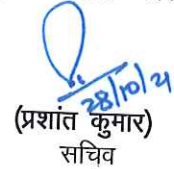 28/10/21
(प्रशांत कुमार)
सचिव